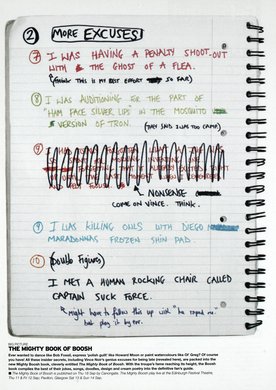 2 MORE EXCUSES
7 I WAS HAVING A PENALTY SHOOT-OUT
WITH THE GHOST OF A FLEA.
(THINK THIS IS MY BEST EFFORT SO FAR)
8 I WAS AUDITIONING FOR THE PART OF
"HAM FACE SILVER LIPS" IN THE MOSQUITO
VERSION OF TRON.
(THEY SAID I WAS TOO CAMP)
9
NONSENSE
COME ON VINCE. THINK.
9 I WAS KILLING OWLS WITH DIEGO
MARADONNAS FROZEN SHIN PAD.
10 (Double Figures)
I MET A HUMAN ROCKING CHAIR CALLED
CAPTAIN SUCK FORCE.
* Might have to follow this up with "he raped me"
but play it by ear.
BIG PICTURE
THE MIGHTY BOOK OF BOOSH
Ever wanted to dance like Bob Fossil, express 'polish guilt' like Howard Moon or paint watercolours like Ol' Greg? Of course
you have! All these insider secrets, including Vince Noir's genius excuses for being late (revealed here), are packed into the
new Mighty Boosh book, cleverly entitled The Mighty Book of Boosh. With the troupe's fervour reaching its height, the Boosh
book compiles the best of their jokes, songs, doodles, design and cream poetry into the definitive fan's guide.
The Mighty Book of Boosh is published on Thu 18 Sep by Canongate. The Mighty Boosh play live at the Edinburgh Festival Theatre,
Thu 11 & Fri 12 Sep; Pavilion, Glasgow Sat 13 & Sun 14 Sep.